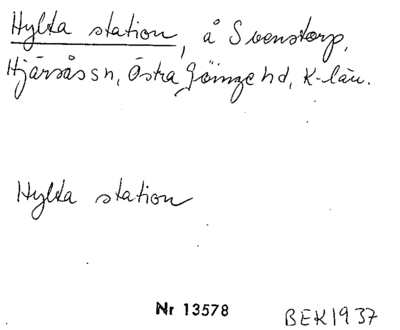 Hylta station, å Svenstorp,
Hjärsås sn, Östra Göinge hd, K-län.
Hylta station
Nr 13578
BEK1937